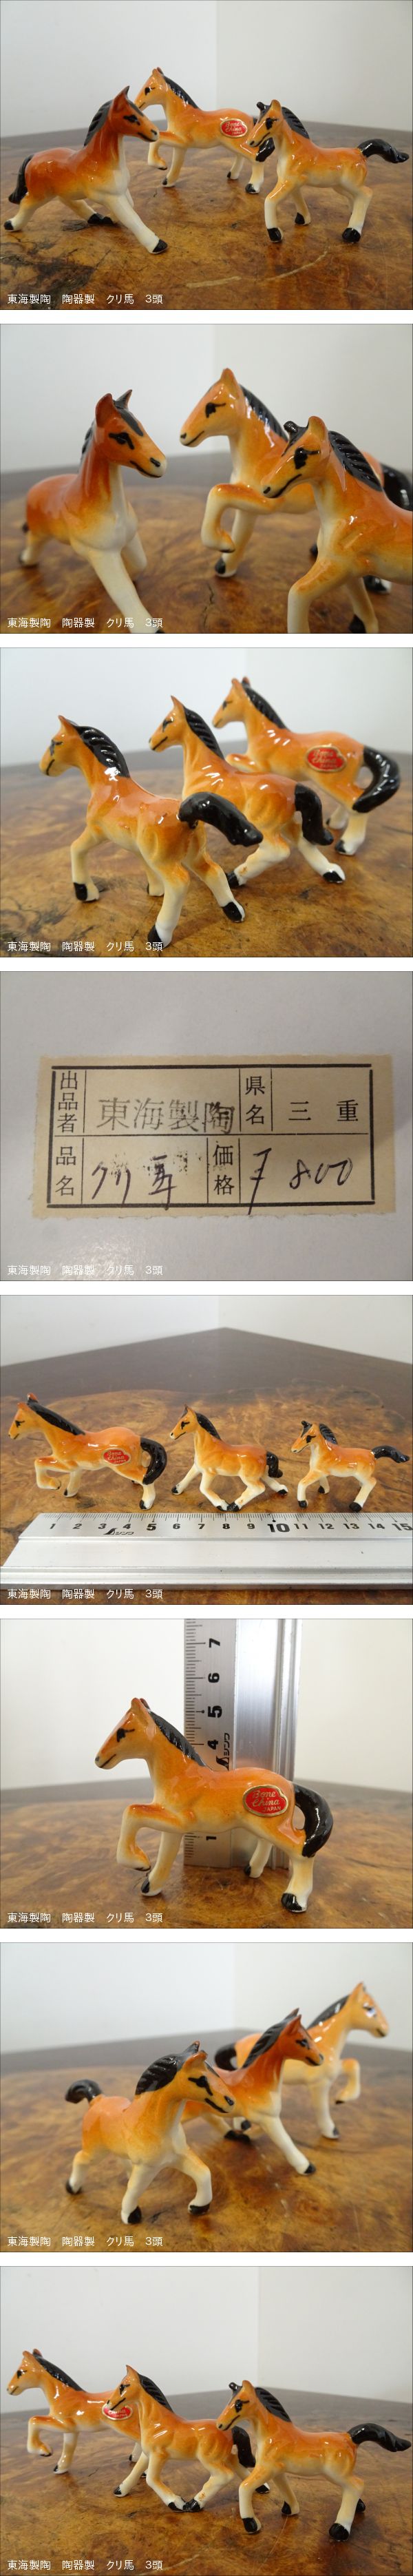 Bone
China
東海製陶　陶器製　クリ馬　3頭
東海製陶　陶器製　クリ馬　3頭
Bone
China
東海製陶　陶器製　クリ馬　3頭
出品者 東海製陶 県名 三重
品名 クリ馬 価格 ₮ 800
東海製陶　陶器製　クリ馬　3頭
1 2 3 4 5 6 7 8 9 10 11 12 13 14 15
シンワ
東海製陶　陶器製　クリ馬　3頭
7
6
5
4
シンワ
Bone
China
JAPAN
1
東海製陶　陶器製　クリ馬　3頭
東海製陶　陶器製　クリ馬　3頭
東海製陶　陶器製　クリ馬　3頭